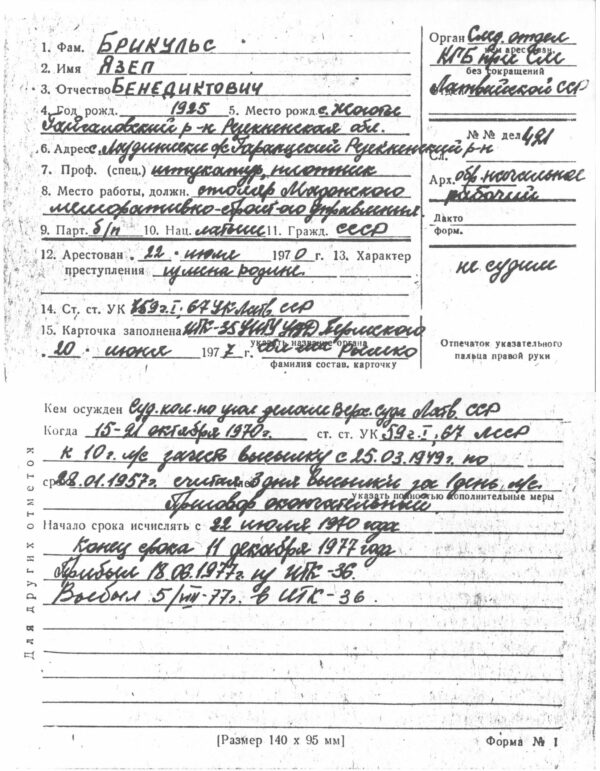 1. Фам. БРИКУЛЬС
2. Имя ЯЗЕП
3. Отчество БЕНЕДИКТОВИЧ
4. Год рожд. 1925 5. Место рожд. с.
р-н Резекненская обл.
6. Адрес: Лаудинский Резекненский р-н
7. Проф. (спец.) штукатур, плотник
8. Место работы, должн. столяр Мадонского
мелиоративно-строит-ого управления.
9. Парт. б/п 10. Нац. латыш 11. Гражд. СССР
12. Арестован "22" июля 1970 г. 13. Характер
преступления измена родине.
14. Ст. ст. УК 59 ч. I, 67 УК Латв. ССР
15. Карточка заполнена ИТК-35 УИТУ УВД Пермского
указать название органа
"20" июня 1977 г.
фамилия состав. карточку
Орган След. отдел
КГБ при СМ
без сокращений
Латвийской ССР
№ № дел 421
Сл.
Арх. обр. начальное
рабочий
Дакто
форм.
не судим
Отпечаток указательного
пальца правой руки
Для других отметок
Кем осужден Суд. кол. по угол. делам Верх. Суда Латв. ССР
Когда 15-21 октября 1970г. ст. ст. УК 59 ч. I, 67 ЛССР
к 10 г. л/с зачесть высылку с 25.03.1949г. по
28.01.1957г. считая 3 дня высылки за 1 день л/с.
указать полностью дополнительные меры
Приговор окончательный.
Начало срока исчислять с 22 июля 1970 года
Конец срока 11 декабря 1977 года
Прибыл 18.06.1977г. из ИТК-36.
Выбыл 5/VIII-77г. в ИТК-36.
[Размер 140 х 95 мм] Форма № 1